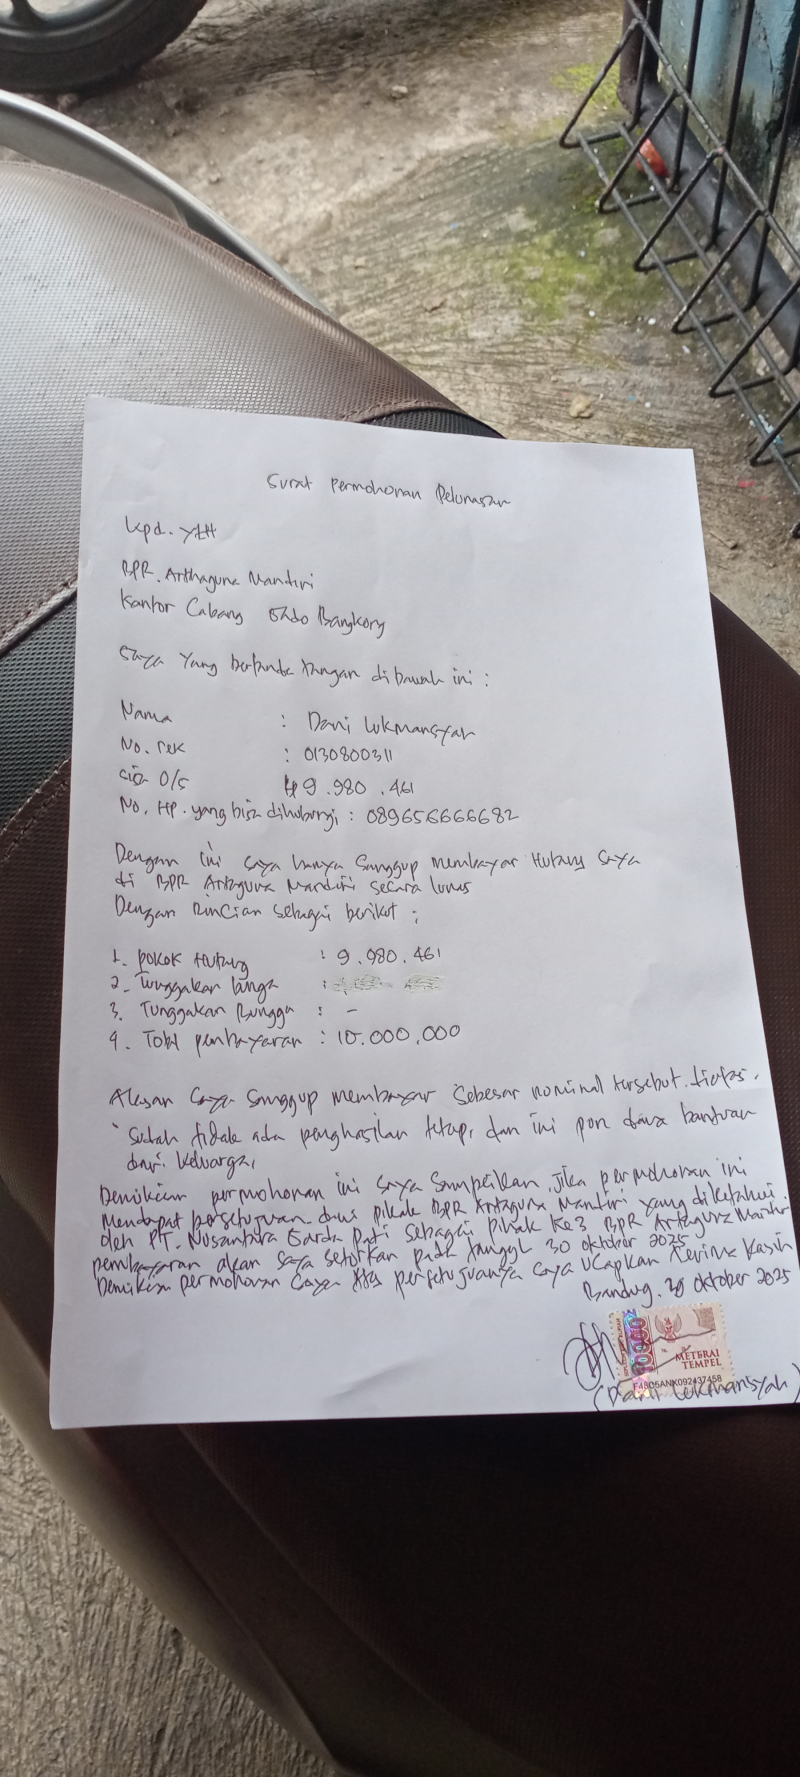 Surat Permohonan Pelunasan
Kpd. YtH
BPR. Arthaguna Mandiri
Kantor Cabang
Saya Yang bertanda tangan dibawah ini :
Nama : Dani Lukmansyah
No. rek : 0130800311
Sisa O/S 9.980.461
No. HP. yang bisa dihubungi : 089656666682
Dengan ini saya hanya Sanggup membayar Hutang saya
di BPR Artaguna Mandiri secara lunas
Dengan Rincian sebagai berikut :
1. Pokok Hutang : 9.980.461
2. Tunggakan bunga :
3. Tunggakan Bungga : -
4. Total pembayaran : 10.000.000
Alasan Saya Sanggup membayar Sebesar nominal tersebut
Sudah tidak ada penghasilan tetap, dan ini pon dana bantuan
dari keluarga,
Demikian permohonan ini saya Sampeikan, Jika permohonan ini
Mendapat persetujuan dari pihak BPR Artaguna Mandiri yang diketahui
oleh PT. Nusantara Garda Pati sebagai pihak Ke3 BPR Artaguna Mandiri
pembayaran akan saya setorkan pada tanggl 30 oktober 2025
Demikian permohonan Saya Atas persetujuanya saya Ucapkan Terima Kasih
Bandung. 30 oktober 2025
10000
METERAI
TEMPEL
F4805ANK092437458
(Dani Lukmansyah)